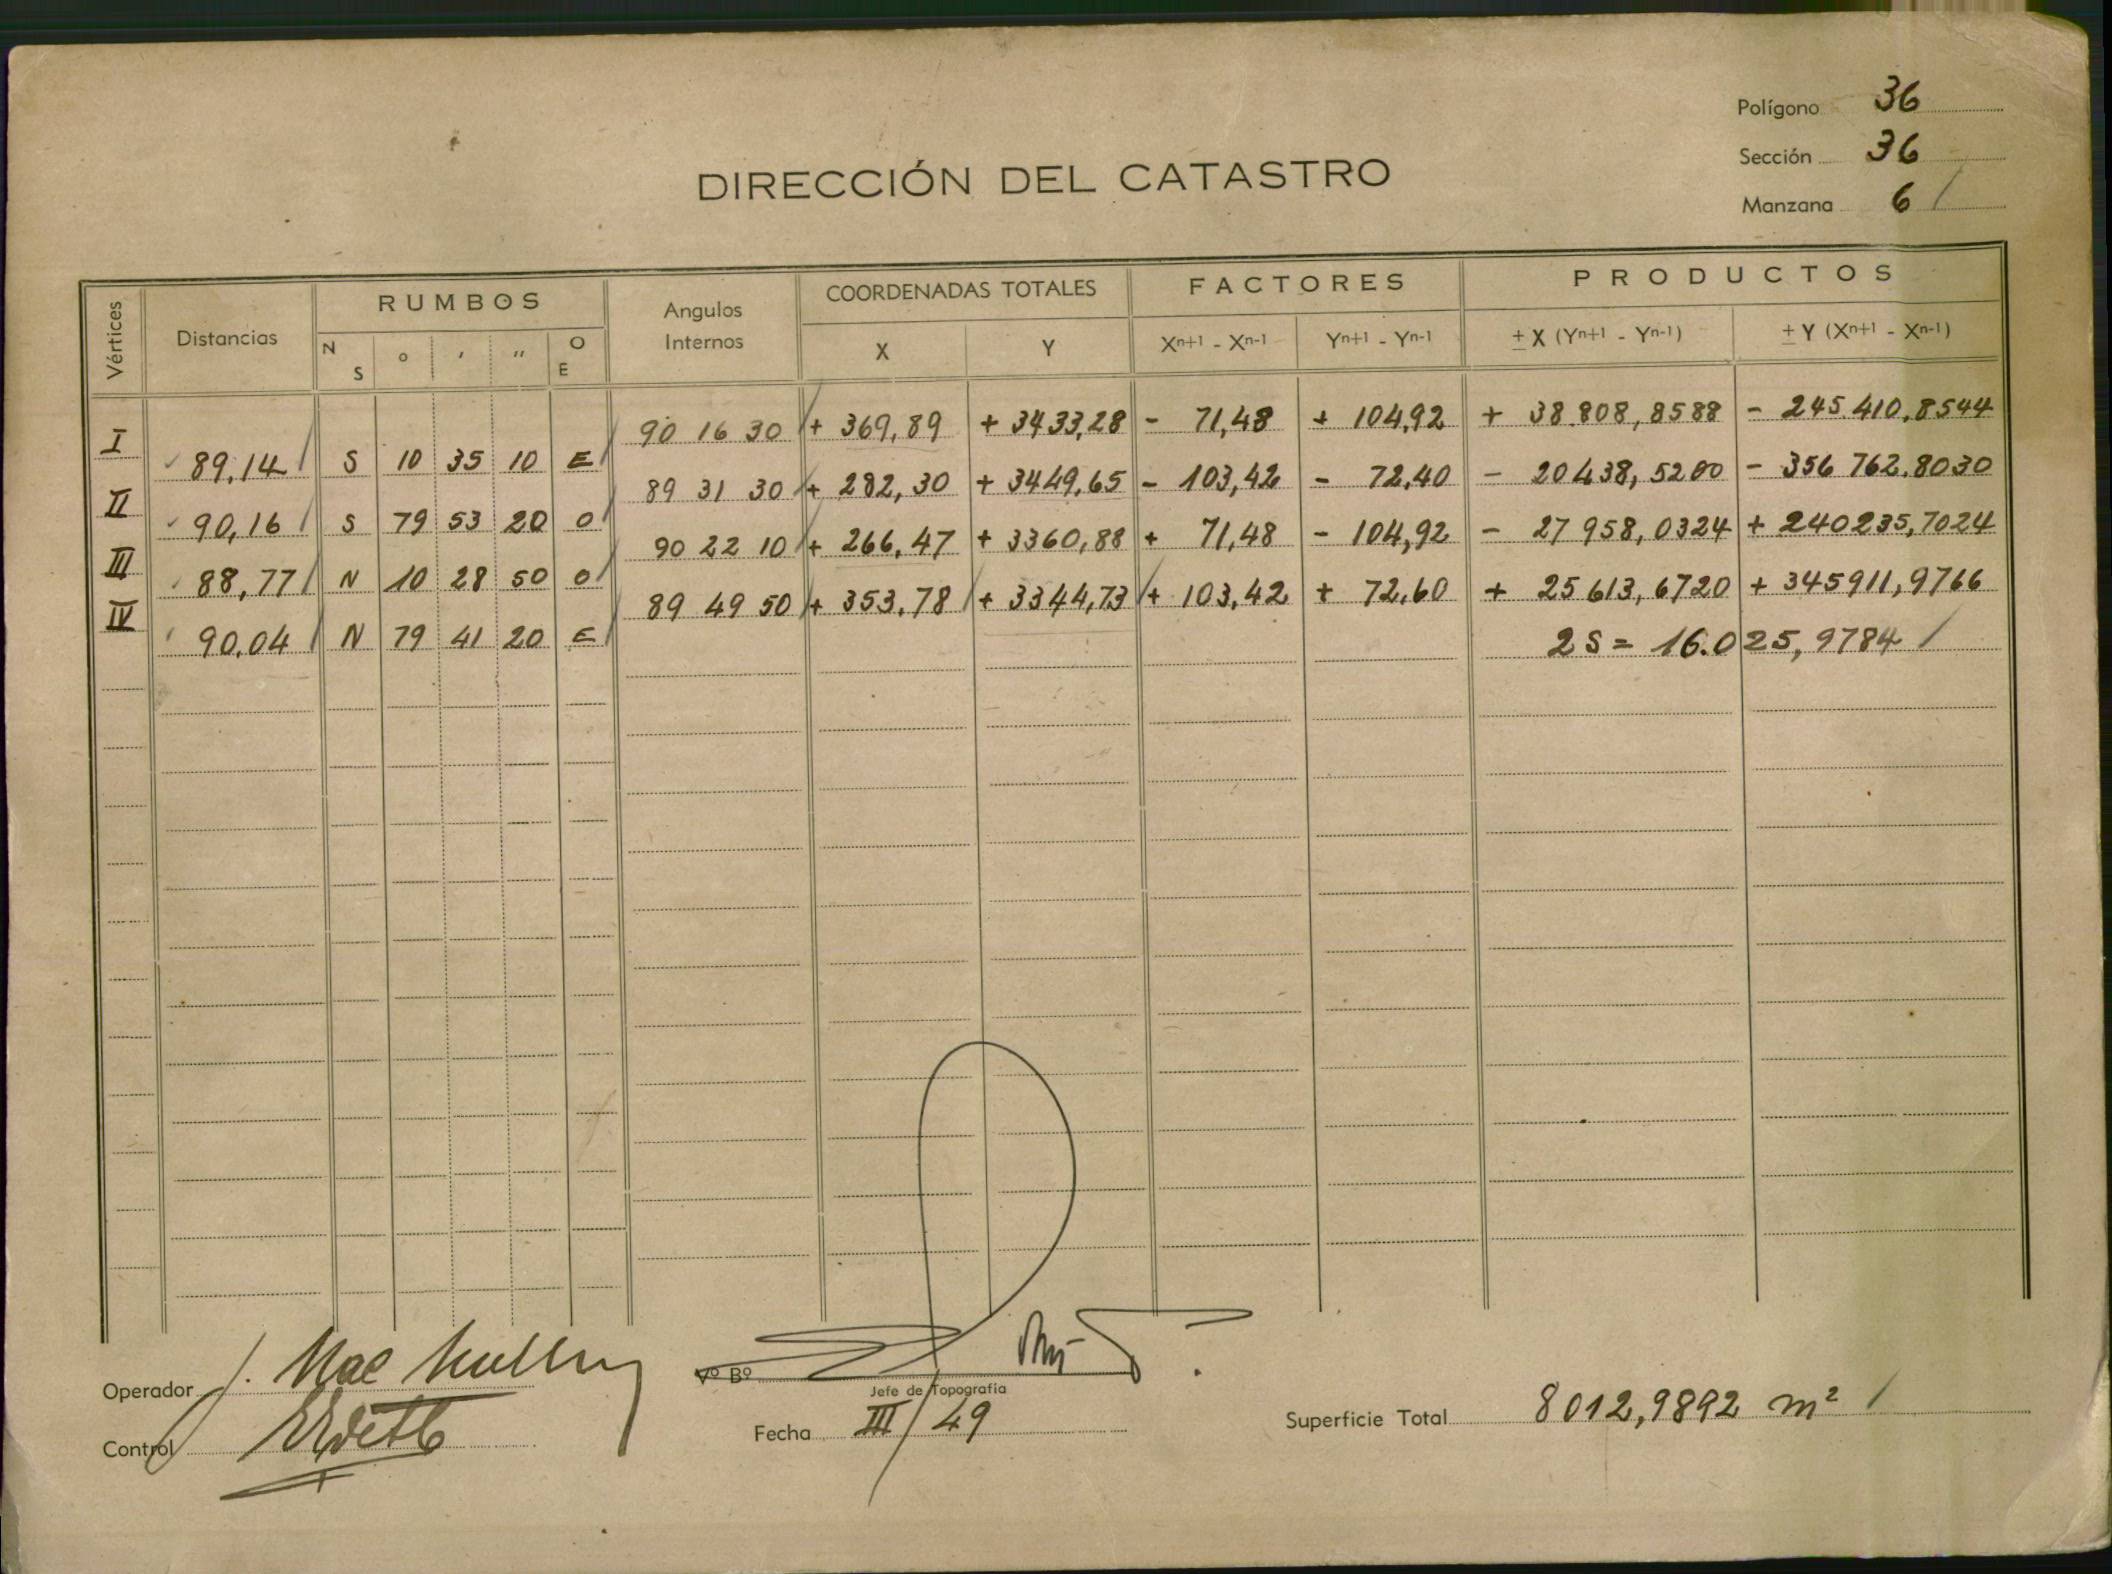 Polígono 36
Sección 36
Manzana 6 /
DIRECCIÓN DEL CATASTRO
Vértices Distancias RUMBOS Angulos Internos COORDENADAS TOTALES FACTORES PRODUCTOS
N S ° ' '' O E X Y Xn+1 - Xn-1 Yn+1 - Yn-1 ± X (Yn+1 - Yn-1) ± Y (Xn+1 - Xn-1)
I 90 16 30 + 369,89 + 3433,28 - 71,48 + 104,92 + 38.808,8588 - 245.410,8544
89,14 S 10 35 10 E
II 89 31 30 + 282,30 + 3449,65 - 103,42 - 72,40 - 20438,5200 - 356 762,8030
90,16 S 79 53 20 O
III 90 22 10 + 266,47 + 3360,88 + 71,48 - 104,92 - 27 958,0324 + 240235,7024
88,77 N 10 28 50 O
IV 89 49 50 + 353,78 + 3344,73 + 103,42 + 72,60 + 25613,6720 + 345911,9766
90,04 N 79 41 20 E
2S = 16.025,9784 /
Operador J. Mac
Vº Bº
Jefe de Topografía
Control
Fecha III/49
Superficie Total 8012,9892 m² /